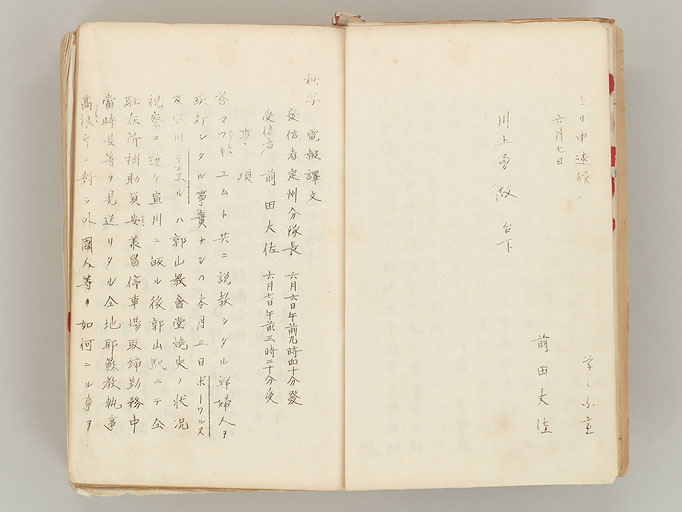 より申進候、
六月七日
川上勇做 台下
草々不宣
前田大佐
秘写 電報譯文
發信者定州分隊長 六月六日午前九時四十分發
受信者 前田大佐 六月七日午前三時二十分受
事項
答マツキユムト共ニ説教シタル韓婦人ヲ
毆打シタル事實ナシ 本月三日ボーウルス
及宣川 ハ郭山教會堂燒失ノ状況
視察ヲ遂ケ宣川ニ皈ル後郭山駅ニテ仝
駐在所補助員安叢昌停車場取締勤務中
當時是等ヲ見送リタル仝地耶蘇教執事
高 ニ對シ外國人等ハ如何ナル事ヲ